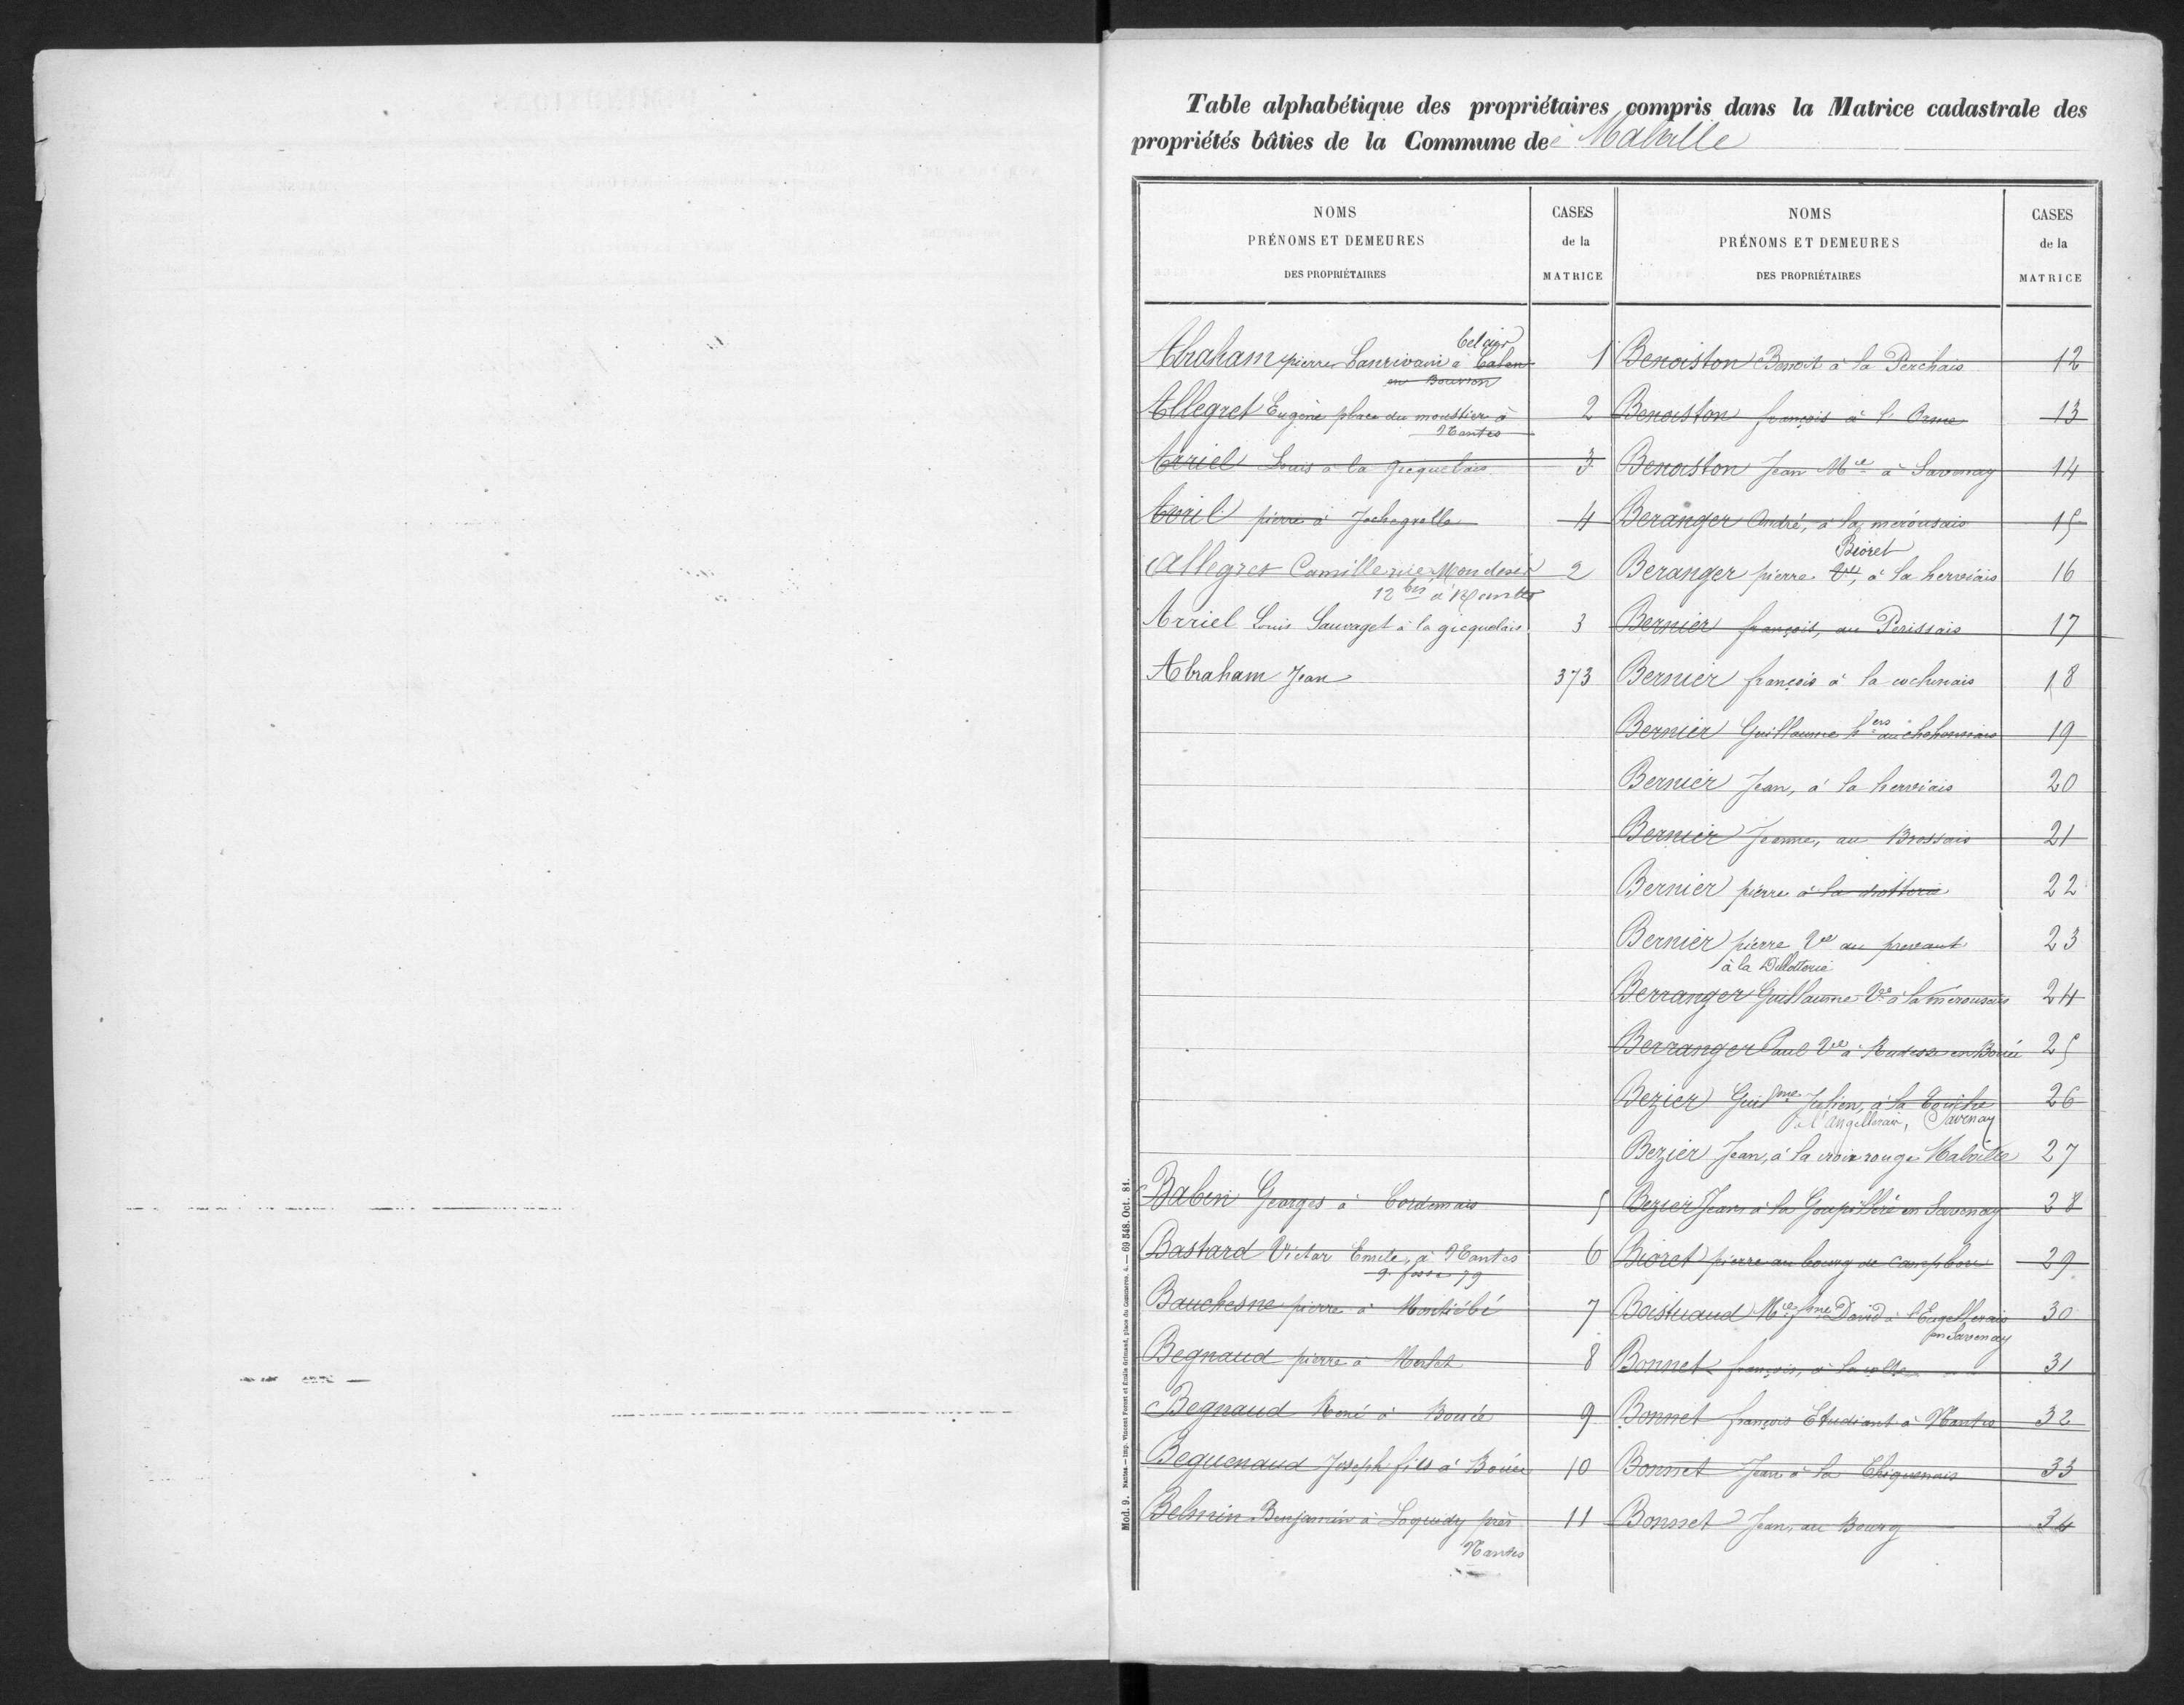 Table alphabétique des propriétaires compris dans la Matrice cadastrale des
propriétés bâties de la Commune de Malville
NOMS
PRÉNOMS ET DEMEURES
DES PROPRIÉTAIRES
CASES
de la
MATRICE
Abraham pierre Lanrivain à 1
en Bouvron
Allegret Eugène place du moustier à 2
Nantes
Arriel Louis à la gicquelais 3
Avril pierre à 4
Allegret Camille rue Mondésir 2
12 bis à Nantes
Arriel Louis Sauvaget à la gicquelais 3
Abraham Jean 373
Babin Georges à Cordemais 5
Bastard Victor Emile, à Nantes 6
q. fosse 79
Bauchesne pierre à 7
Begnaud pierre à 8
Begnaud René à Bouée 9
Beguenaud Joseph fils à Bouée 10
Belmin Benjamin à Loquidy près 11
Nantes
NOMS
PRÉNOMS ET DEMEURES
DES PROPRIÉTAIRES
CASES
de la
MATRICE
Benoiston Benoit à la Perchais 12
Benoiston françois à l'Orme 13
Benoiston Jean Mie à Savenay 14
Beranger André, à la mérousais 15
Bioret
Beranger pierre Ve, à la herviais 16
Bernier françois, au Perissais 17
Bernier françois à la cochinais 18
Bernier Guillaume hers 19
Bernier Jean, à la herviais 20
Bernier Jeanne, au Brossais 21
Bernier pierre à la 22
Bernier pierre Ve au 23
à la Dillotterie
Berranger Guillaume Ve à la mérousais 24
Berranger Paul Ve à en Bouée 25
Bezier Guilme Julien, à la Touche 26
à l'Angellerais, Savenay
Bezier Jean, à la croix rouge Malville 27
Bezier Jean à la en Savenay 28
Bioret pierre au bourg de campbon 29
Boistuaud Mie fme David à l'Engellerais 30
en Savenay
Bonnet françois, à 31
Bonnet françois Etudiant à Nantes 32
Bonnet Jean à la 33
Bonnet Jean, au Bourg 34
Mod. 9. Nantes. — Imp. Vincent Forest et Émile Grimaud, place du Commerce, 4. — 69 548. Oct. 81.